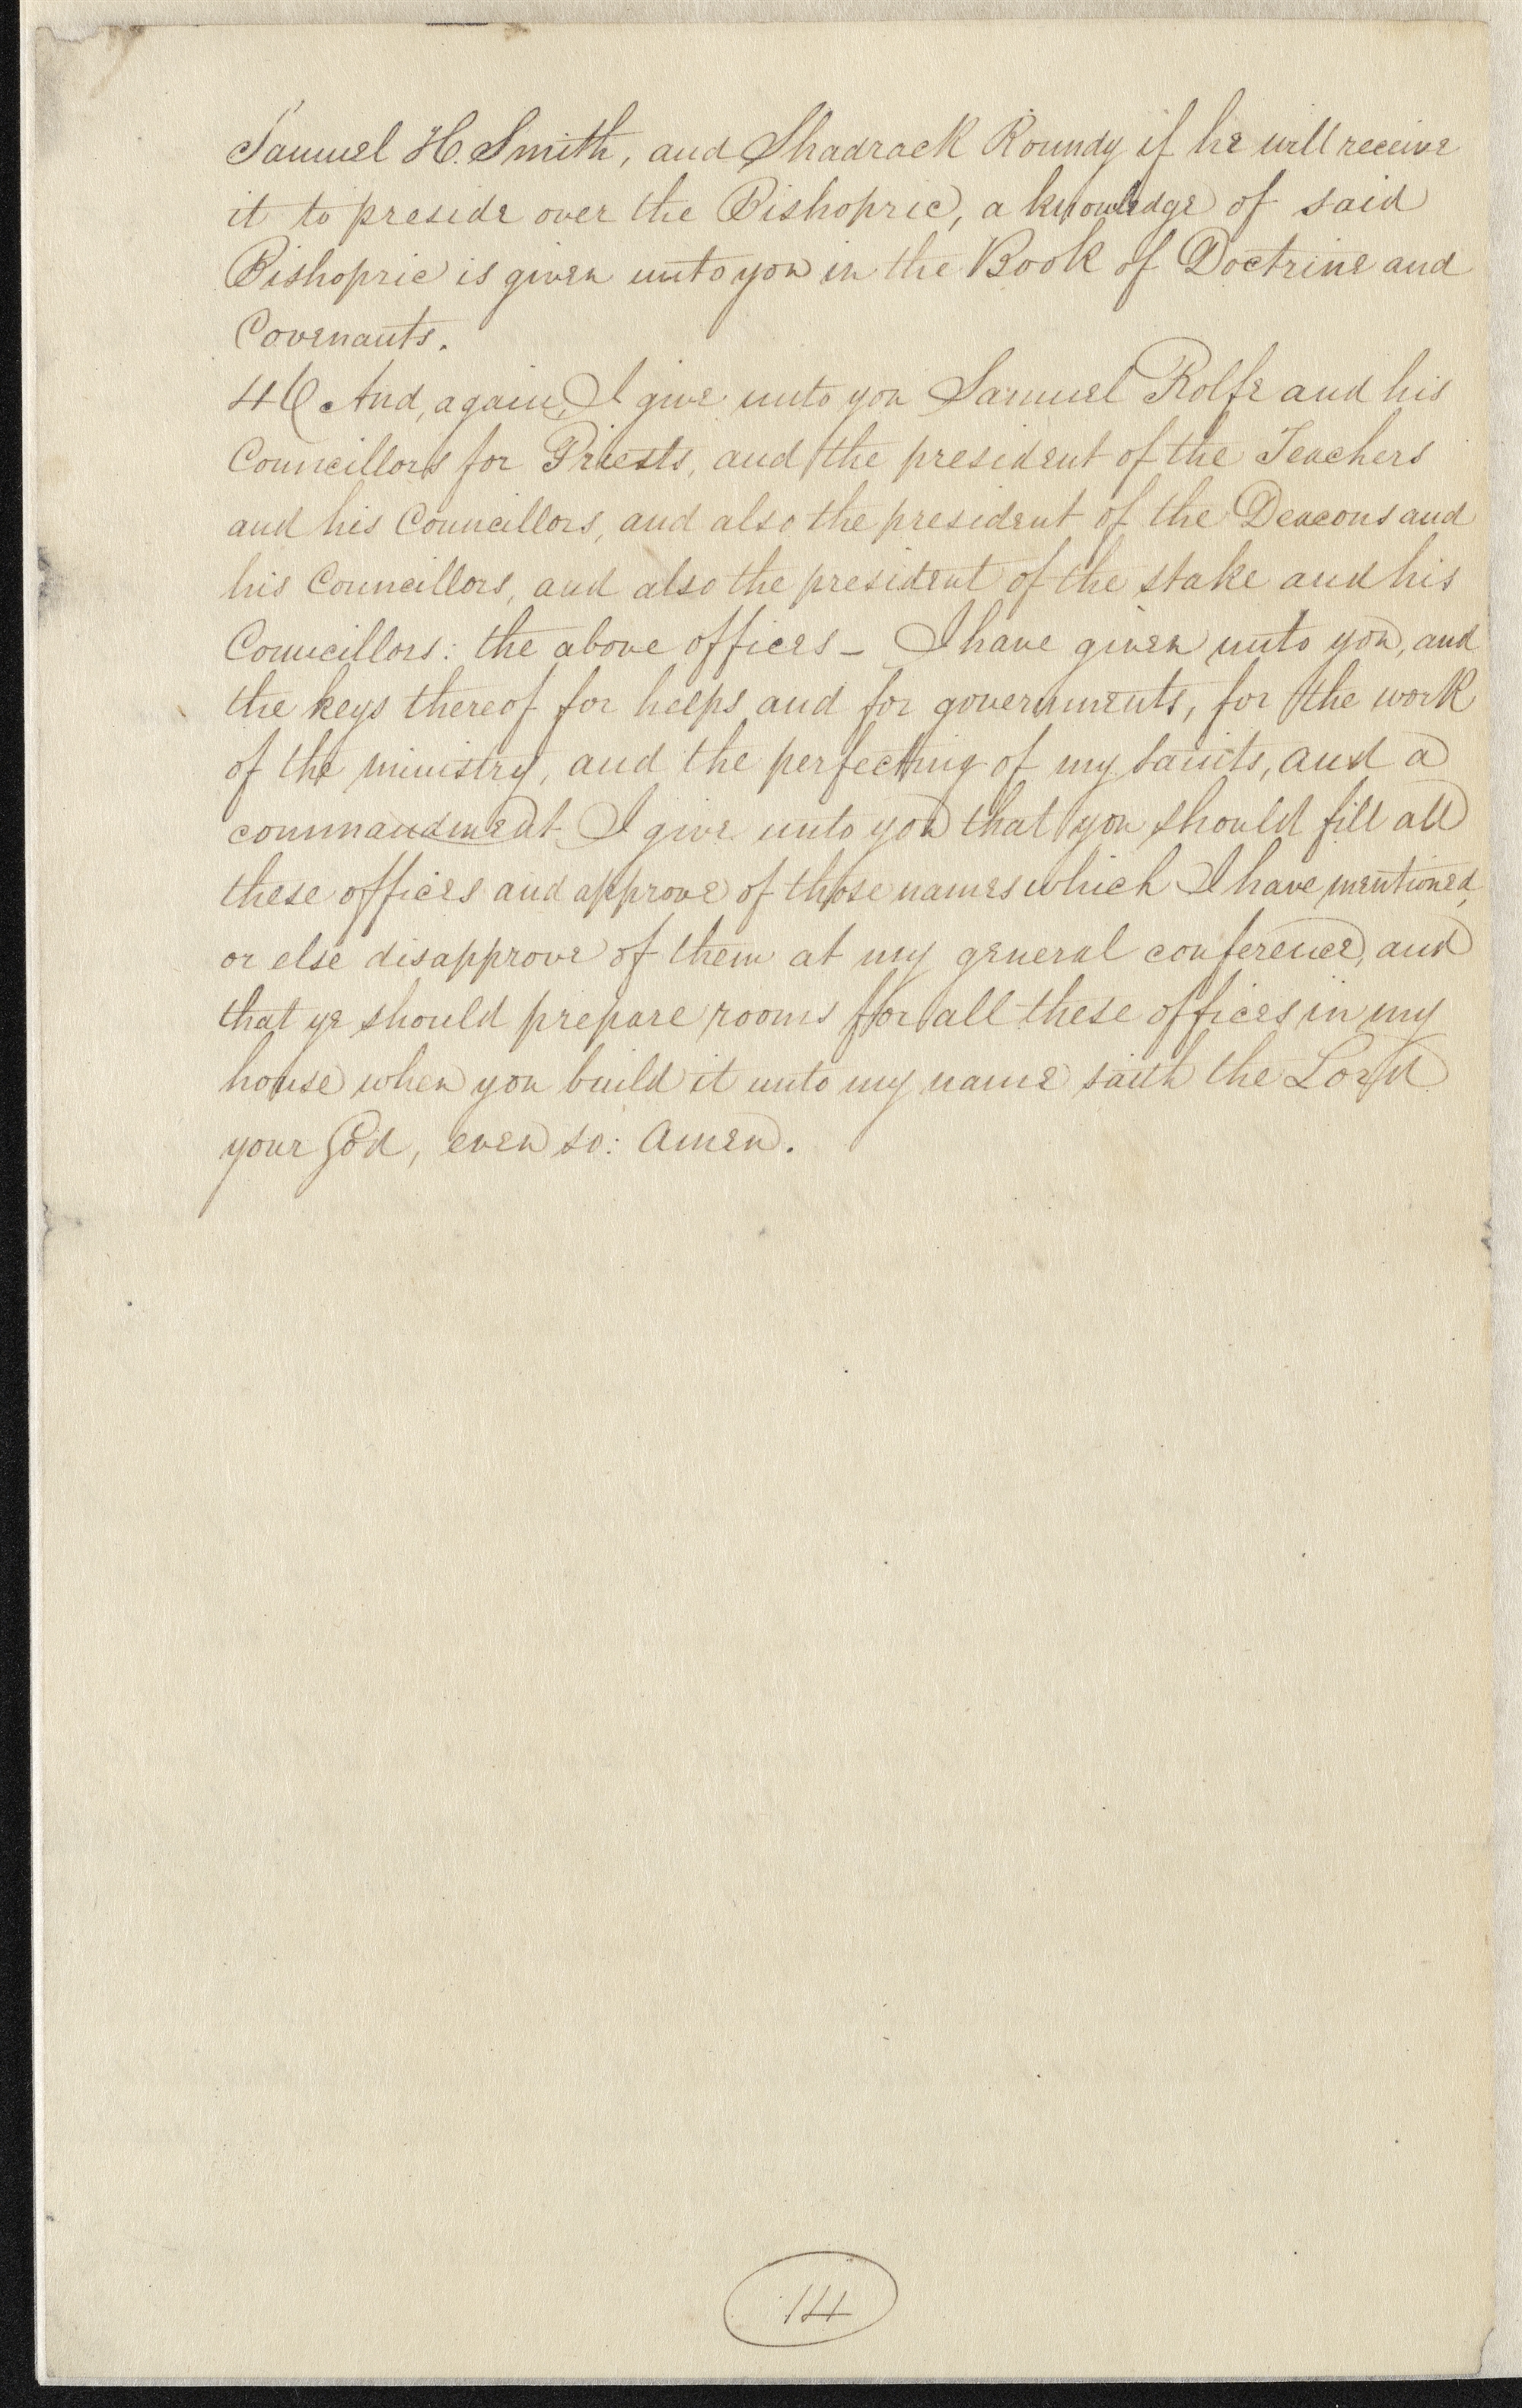 Samuel H. Smith, and Shadrack Roundy if he will receive
it to preside over the Bishopric, a knowledge of said
Bishopric is given unto you in the Book of Doctrine and
Covenants.
46 And, again, I give unto you Samuel Rolfe and his
Councillors for Priests, and the president of the Teachers
and his Councillors, and also the president of the Deacons and
his Councillors, and also the president of the stake and his
Councillors: the above offices – I have given unto you, and
the keys thereof for helps and for governments, for the work
of the ministry, and the perfecting of my saints, and a
commandment I give unto you that you should fill all
these offices and approve of those names which I have mentioned,
or else disapprove of them at my general conference, and
that ye should prepare rooms for all these offices in my
house when you build it unto my name saith the Lord
your God, even so: Amen.
14